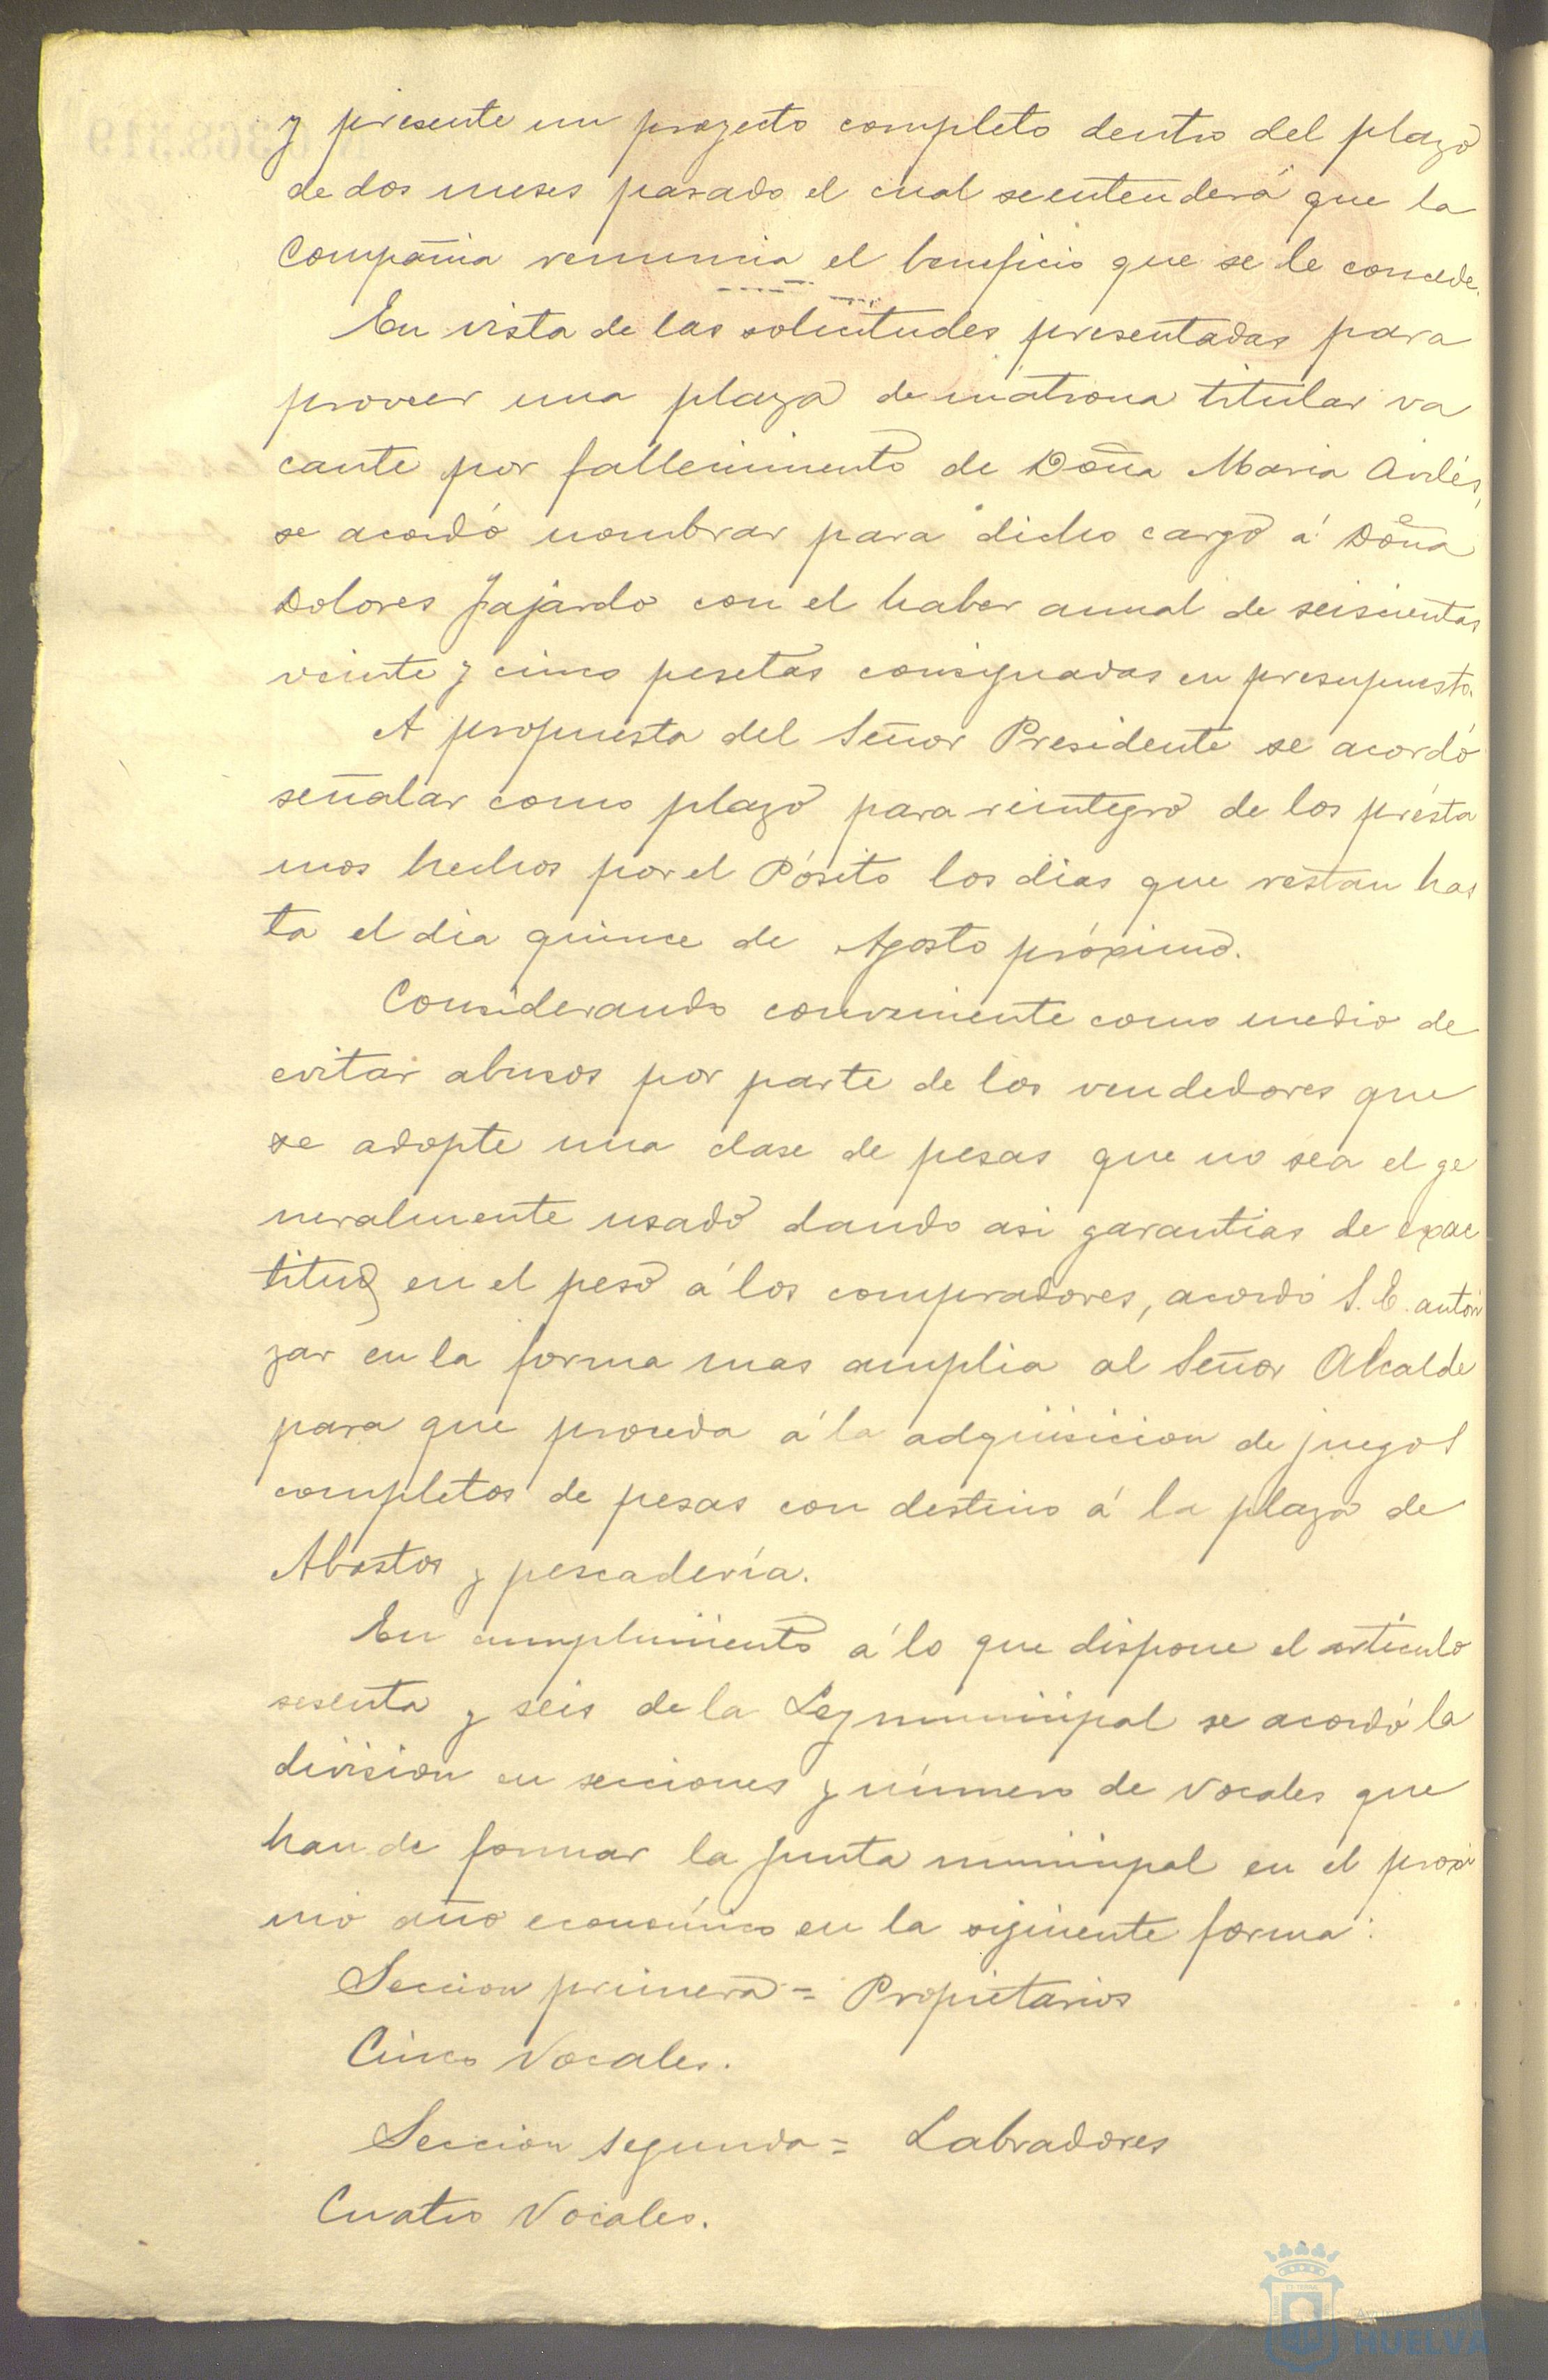 y presente un proyecto completo dentro del plazo
de dos meses pasado el cual se entenderá que la
Compañia renuncia el beneficio que se le concede.
En vista de las solicitudes presentadas para
proveer una plaza de matrona titular va
cante por fallecimiento de Doña Maria
se acordó nombrar para dicho cargo á Doña
Dolores Fajardo con el haber anual de seiscientas
veinte y cinco pesetas consignadas en presupuesto.
A propuesta del Señor Presidente se acordó
señalar como plazo para reintegro de los présta
mos hechos por el Pósito los dias que restan has
ta el dia quince de Agosto próximo.
Considerando conveniente como medio de
evitar abusos por parte de los vendedores que
se adopte una clase de pesas que no sea el ge
neralmente usado dando asi garantias de exac
titud en el peso á los compradores, acordó S. E. autori
zar en la forma mas amplia al Señor Alcalde
para que proceda á la adquisicion de juegos
completos de pesas con destino á la plaza de
Abastos y pescadería.
En cumplimiento á lo que dispone el artículo
sesenta y seis de la Ley municipal se acordó la
division en secciones y número de vocales que
han de formar la junta municipal en el proxi
mo año económico en la siguiente forma:
Seccion primera = Propietarios
Cinco Vocales.
Seccion segunda = Labradores
Cuatro Vocales.
HUELVA